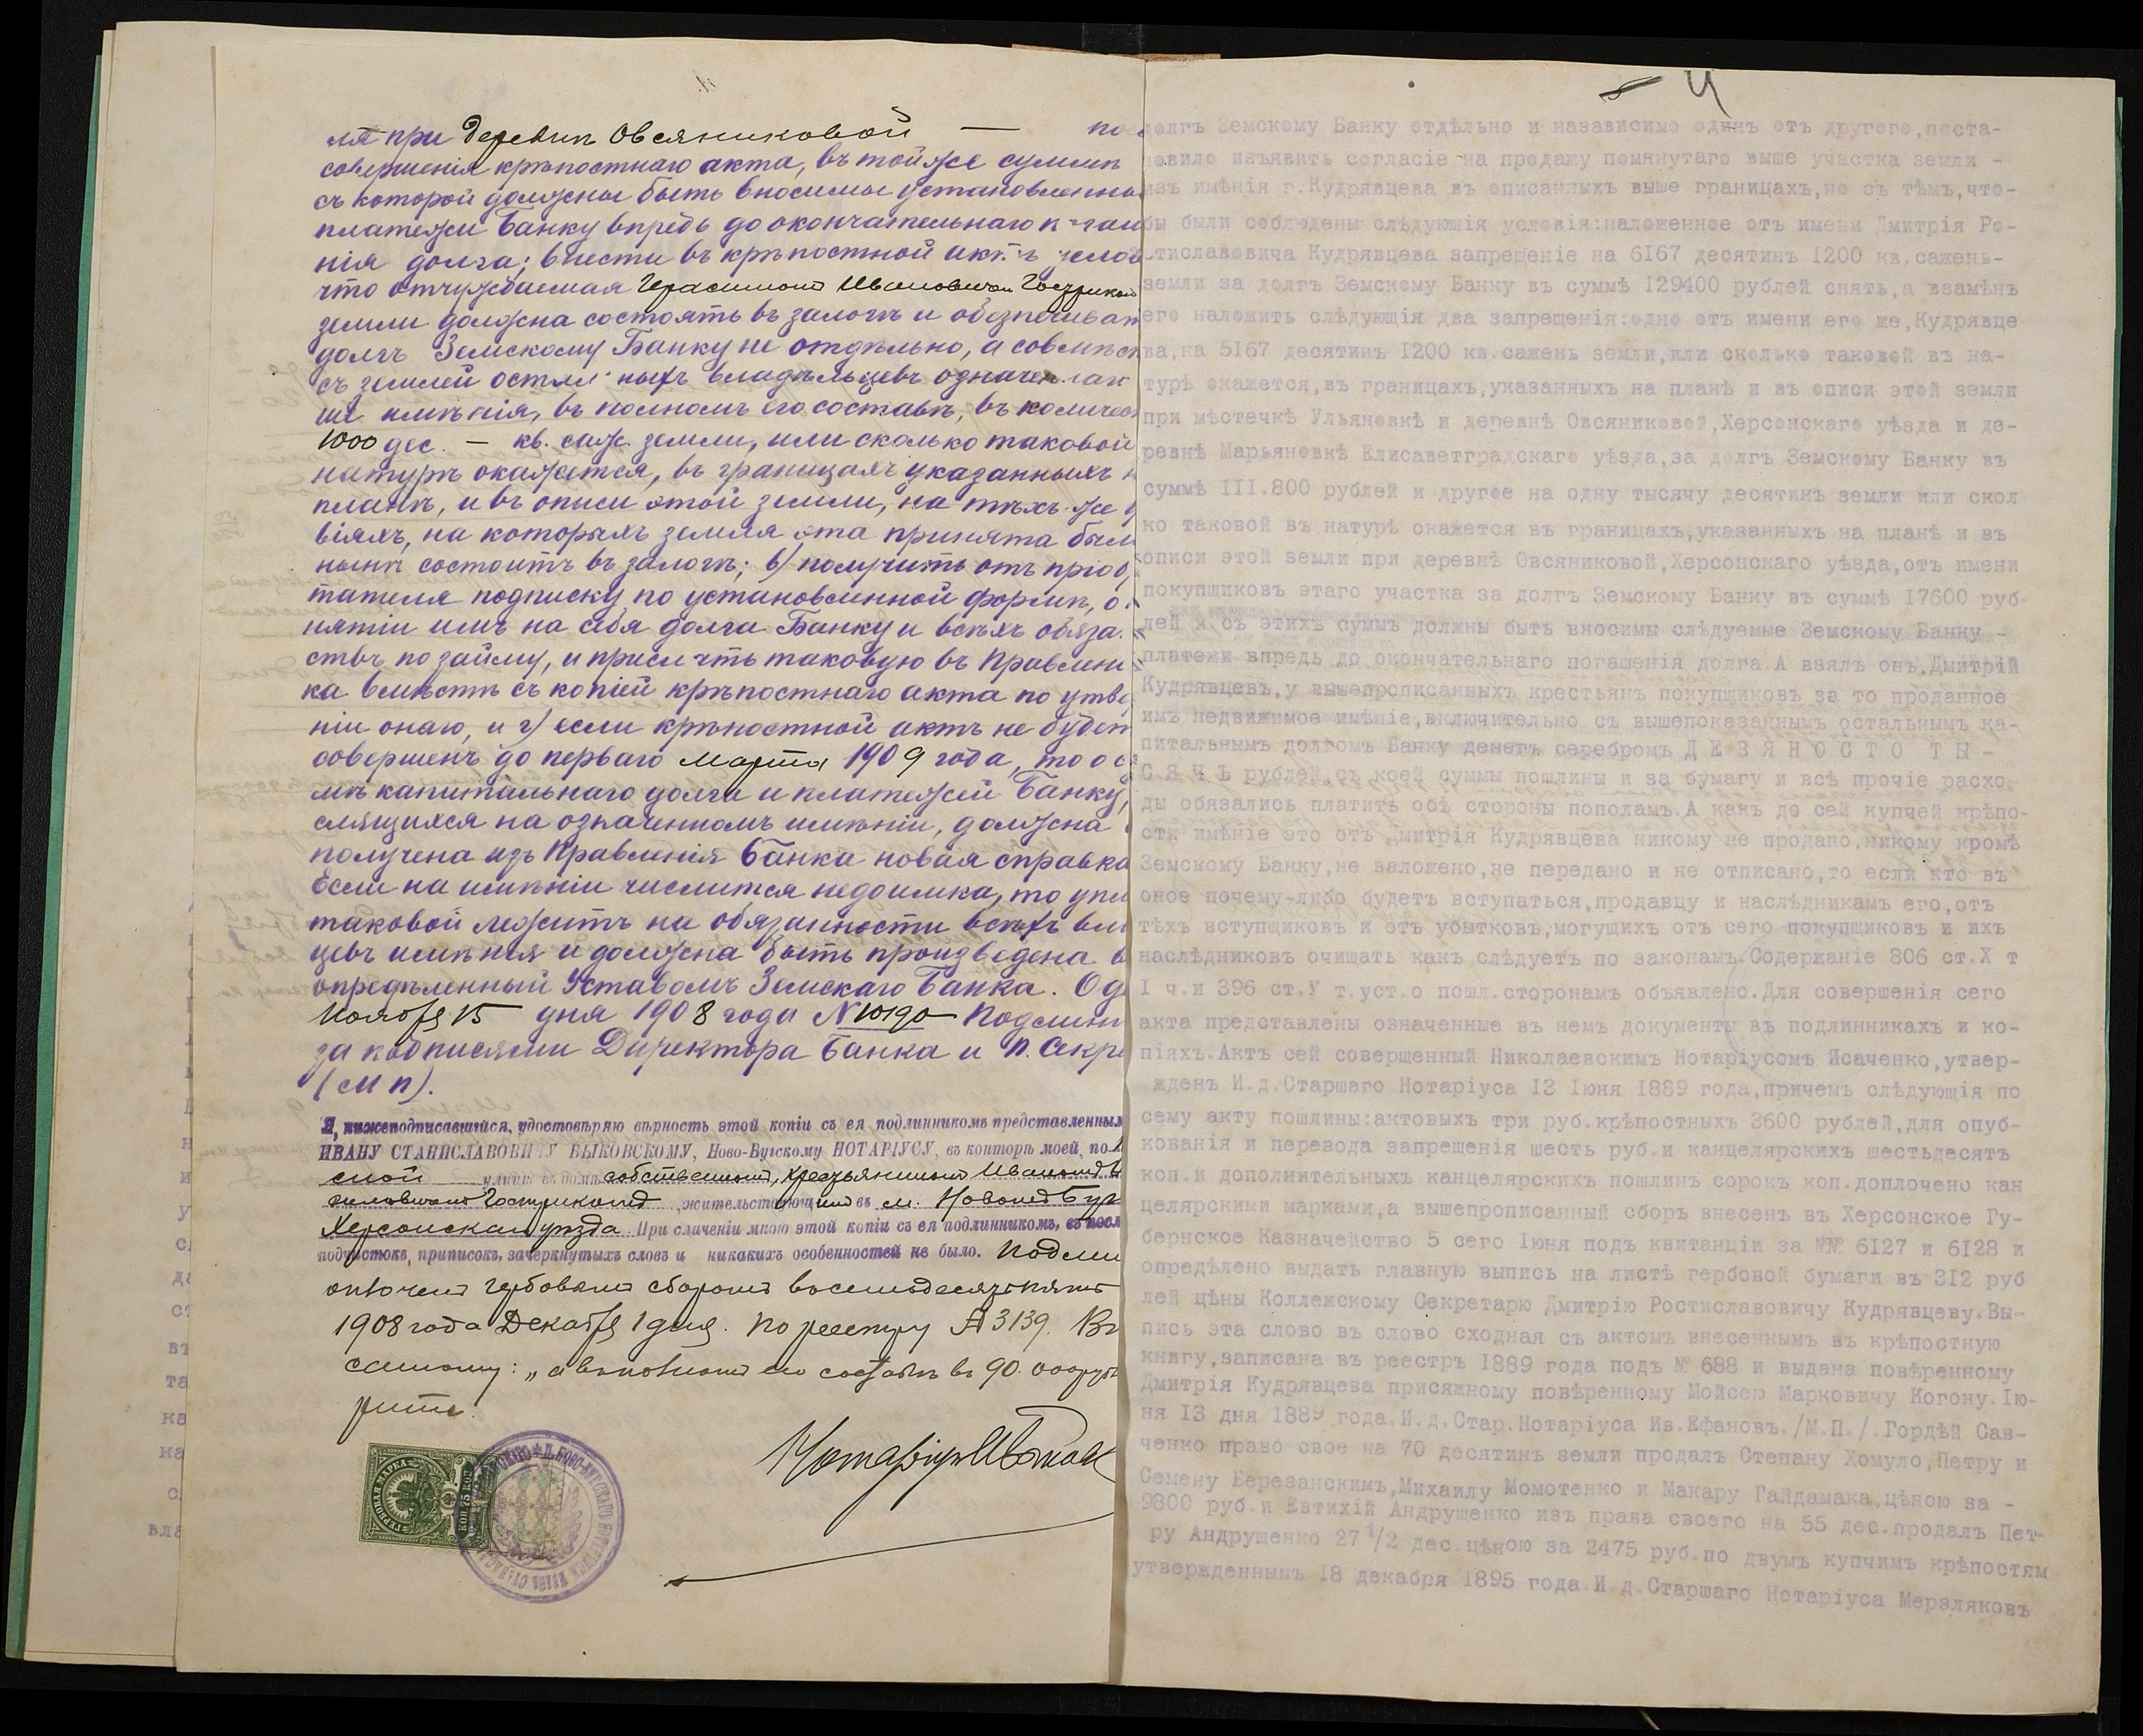 ля при деревнѣ Овсяниковой — по
совершенія крѣпостнаго акта, въ той же суммѣ
съ которой должны быть вносимы установленны
платежи Банку впредь до окончательнаго
нія долга; внести въ крѣпостной актъ
что отчуждаемая Герасимомъ Ивановичемъ
земли должна состоять въ залогѣ и обезпечиват
долгъ Земскому Банку не отдѣльно, а совмѣст
съ землей остальныхъ владѣльцевъ
имѣнія, въ полномъ его составѣ, въ количес
1000 дес. — кв. саж. земли, или сколько таковой
натурѣ окажется, въ границахъ указанныхъ н
планѣ, и въ описи этой земли, на тѣхъ-же у
віяхъ, на которыхъ земля эта принята был
нынѣ состоитъ въ залогѣ; в) получить отъ пріоб
тателя подписку, по установленной формѣ, о
нятіи имъ на себя долга Банку и всѣхъ обяза
ствъ по займу, и прислать таковую въ Правлені
ка вмѣстѣ съ копіей крѣпостнаго акта по утве
ніи онаго, и г) если крѣпостной актъ не будет
совершенъ до перваго Марта 1909 года, то о с
мѣ капитальнаго долга и платежей Банку,
слящихся на означенномъ имѣніи, должна
получена изъ Правленія Банка новая справка
Если на имѣніи числится недоимка, то упл
таковой лежитъ на обязанности всѣхъ вла
цевъ имѣнія и должна быть произведена в
опредѣленный Уставомъ Земскаго Банка. Од
Ноября 15 дня 1908 года № 10190 Подлин
за подписями Директора Банка и п. Секре
(М п).
Я, нижеподписавшійся, удостовѣряю вѣрность этой копіи съ ея подлинникомъ представленным
ИВАНУ СТАНИСЛАВОВИЧУ БЫКОВСКОМУ, Ново-Бугскому НОТАРІУСУ, въ конторѣ моей, по
ской улицѣ въ домѣ собственномъ, крестьяниномъ Иваномъ
жительствующимъ въ м. Новомъ Буг
Херсонскаго уѣзда. При сличеніи мною этой копіи съ ея подлинникомъ, въ посл
подчистокъ, приписокъ, зачеркнутыхъ словъ и никакихъ особенностей не было. Подлин
оплоченъ гербовымъ сборомъ восемьдесятъ пять
1908 года Декабря 1 дня. По реестру № 3139. Вы
„а въ полномъ его составѣ въ 90.000 руб

Нотаріусъ
ГЕРБОВАЯ МАРКА
75 КОП
долгъ Земскому Банку отдѣльно и назависимо одинъ отъ другого,поста-
новило изъявить согласіе на продажу помянутаго выше участка земли -
изъ имѣнія г.Кудрявцева въ описанныхъ выше границахъ,но съ тѣмъ,что-
бы были соблюдены слѣдующія условія:наложенное отъ имени Дмитрія Ро-
стиславовича Кудрявцева запрещеніе на 6167 десятинъ 1200 кв.сажень-
земли за долгъ Земскому Банку въ суммѣ 129400 рублей снять,а взамѣнъ
его наложить слѣдующія два запрещенія:одно отъ имени его же,Кудрявце
ва,на 5167 десятинъ 1200 кв.сажень земли,или сколько таковой въ на-
турѣ окажется,въ границахъ,указанныхъ на планѣ и въ описи этой земли
при мѣстечкѣ Ульяновкѣ и деревнѣ Овсяниковой,Херсонскаго уѣзда и де-
ревнѣ Марьяновкѣ Елисаветградскаго уѣзда,за долгъ Земскому Банку въ
суммѣ III.800 рублей и другое на одну тысячу десятинъ земли или скол
ко таковой въ натурѣ окажется въ границахъ,указанныхъ на планѣ и въ
описи этой земли при деревнѣ Овсяниковой,Херсонскаго уѣзда,отъ имени
покупщиковъ этаго участка за долгъ Земскому Банку въ суммѣ 17600 руб-
лей и съ этихъ суммъ должны быть вносимы слѣдуемые Земскому Банку -
платежи впредь до окончательнаго погашенія долга.А взялъ онъ,Дмитрій
Кудрявцевъ,у вышепрописанныхъ крестьянъ покупщиковъ за то проданное
имъ недвижимое имѣніе,включительно съ вышепоказаннымъ остальнымъ ка-
питальнымъ долгомъ Банку денегъ серебромъ ДЕВЯНОСТО ТЫ-
СЯЧЪ рублей,съ коей суммы пошлины и за бумагу и всѣ прочіе расхо-
ды обязались платить обѣ стороны пополамъ.А какъ до сей купчей крѣпо-
сти имѣніе это отъ Дмитрія Кудрявцева никому не продано,никому кромѣ
Земскому Банку,не заложено,не передано и не отписано,то если кто въ
оное почему-либо будетъ вступаться,продавцу и наслѣдникамъ его,отъ
тѣхъ вступщиковъ и отъ убытковъ,могущихъ отъ сего покупщиковъ и ихъ
наслѣдниковъ очищать какъ слѣдуетъ по законамъ.Содержаніе 806 ст.X т
I ч.и 396 ст.У т.уст.о пошл.сторонамъ объявлено.Для совершенія сего
акта представлены означенные въ немъ документы въ подлинникахъ и ко-
піяхъ.Актъ сей совершенный Николаевскимъ Нотаріусомъ Исаченко,утвер-
жденъ И.д.Старшаго Нотаріуса 13 Іюня 1889 года,причемъ слѣдующія по
сему акту пошлины:актовыхъ три руб.крѣпостныхъ 3600 рублей,для опуб-
кованія и перевода запрещенія шесть руб.и канцелярскихъ шестьдесятъ
коп.и дополнительныхъ канцелярскихъ пошлинъ сорокъ коп.доплочено кан
целярскими марками,а вышепрописанный сборъ внесенъ въ Херсонское Гу-
бернское Казначейство 5 сего Іюня подъ квитанціи за №№ 6127 и 6128 и
опредѣлено выдать главную выпись на листѣ гербовой бумаги въ 312 руб
лей цѣны Коллежскому Секретарю Дмитрію Ростиславовичу Кудрявцеву.Вы-
пись эта слово въ слово сходная съ актомъ внесеннымъ въ крѣпостную
книгу,записана въ реестръ 1889 года подъ № 688 и выдана повѣренному
Дмитрія Кудрявцева присяжному повѣренному Мойсею Марковичу Когону.Ію-
ня 13 дня 1889 года.И.д.Стар.Нотаріуса Ив.Ефановъ./М.П./.Гордѣй Сав-
ченко право свое на 70 десятинъ земли продалъ Степану Хомуло,Петру и
Семену Березанскимъ,Михаилу Момотенко и Макару Гайдамака,цѣною за -
9800 руб.и Евтихій Андрущенко изъ права своего на 55 дес.продалъ Пет-
ру Андрущенко 27 1/2 дес.цѣною за 2475 руб.по двумъ купчимъ крѣпостям
утвержденнымъ 18 декабря 1895 года.И.д.Старшаго Нотаріуса Мерзляковъ